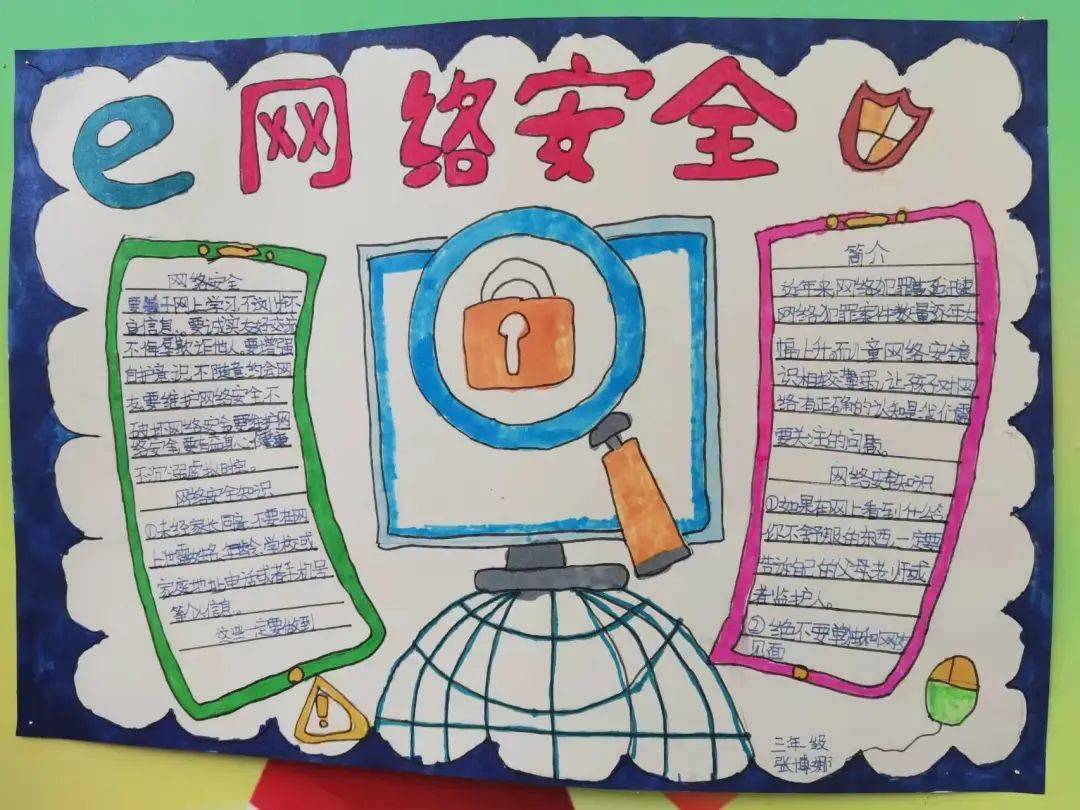 e网络安全
网络安全
要善于网上学习,不浏览不
良信息。要诚实友好交流
不侮辱欺诈他人。要增强
自护意识,不随意约会网
友。要维护网络安全,不
破坏网络安全要维护网
络安全要有益身心健康
不沉溺虚拟时空。
网络安全知识
①未经家长同意,不要在网
上泄露姓名、年龄、学校或
家庭地址电话或者手机号
等个人信息。
这些一定要做到
简介
近年来,网络犯罪
网络犯罪案件数量逐年大
幅上升。而儿童网络安全意
识相较薄弱,让孩子对网
络有正确的认知是我们需
要关注的问题。
网络安全知识
①如果在网上看到什么令
你不舒服的东西,一定要
告诉自己的父母老师或
者监护人。
②绝不要单独和网友
见面
三年级
张博娜